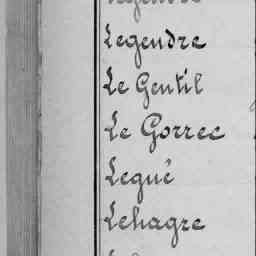 Legendre
Le Gentil
Le Gorrec
Legué
Lehagre